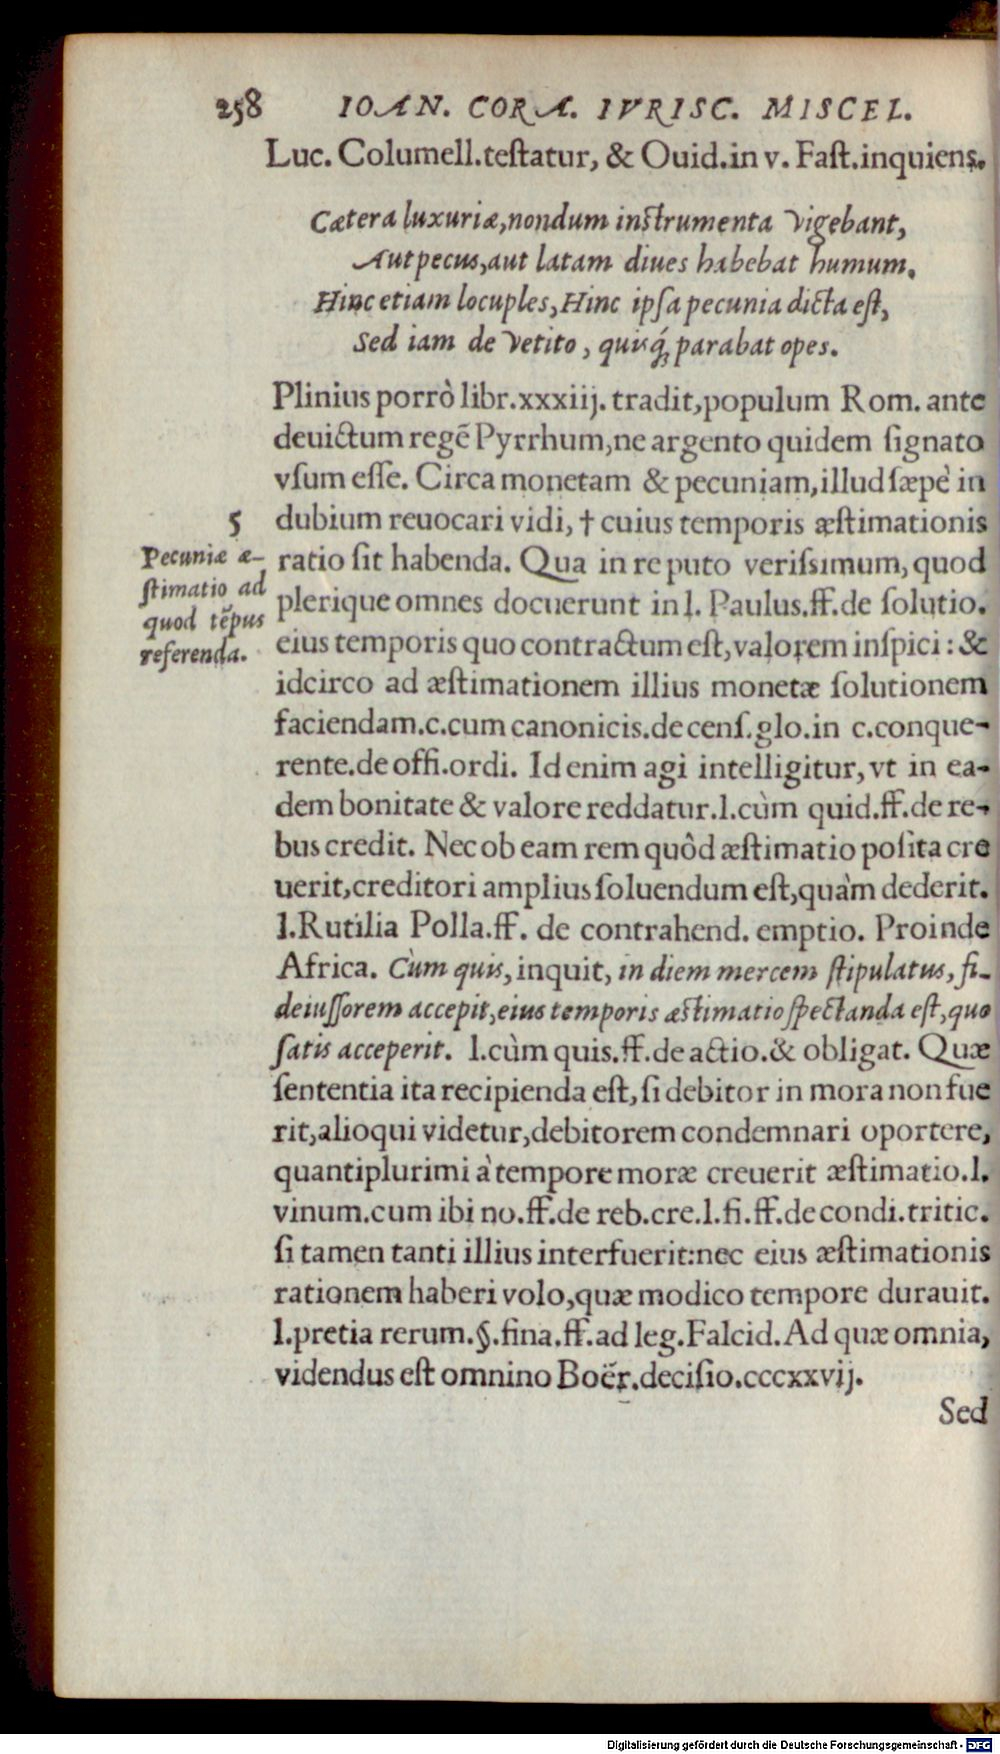 258 IOAN. CORA. IVRISC. MISCEL.
Luc. Columell.testatur, & Ouid.in v. Fast.inquiens.
Cætera luxuriæ,nondum instrumenta vigebant,
Aut pecus,aut latam diues habebat humum.
Hinc etiam locuples,Hinc ipsa pecunia dicta est,
Sed iam de vetito, quisq́; parabat opes.
Plinius porrò libr.xxxiij. tradit,populum Rom. ante
deuictum regē Pyrrhum,ne argento quidem signato
vsum esse. Circa monetam & pecuniam,illud sæpè in
5 dubium reuocari vidi, † cuius temporis æstimationis
Pecuniæ æ-
stimatio ad
quod tēpus
referenda.
ratio sit habenda. Qua in re puto verissimum, quod
plerique omnes docuerunt in l. Paulus.ff.de solutio.
eius temporis quo contractum est,valorem inspici: &
idcirco ad æstimationem illius monetæ solutionem
faciendam.c.cum canonicis.de cens.glo.in c.conque-
rente.de offi.ordi. Id enim agi intelligitur, vt in ea-
dem bonitate & valore reddatur.l.cùm quid.ff.de re-
bus credit. Nec ob eam rem quôd æstimatio posita cre
uerit,creditori amplius soluendum est,quàm dederit.
l.Rutilia Polla.ff. de contrahend. emptio. Proinde
Africa. Cùm quis, inquit, in diem mercem stipulatus, fi-
deiussorem accepit,eius temporis æstimatio spectanda est,quo
satis acceperit. l.cùm quis.ff.de actio.& obligat. Quæ
sententia ita recipienda est,si debitor in mora non fue
rit,alioqui videtur,debitorem condemnari oportere,
quantiplurimi à tempore moræ creuerit æstimatio.l.
vinum.cum ibi no.ff.de reb.cre.l.fi.ff.de condi.tritic.
si tamen tanti illius interfuerit:nec eius æstimationis
rationem haberi volo,quæ modico tempore durauit.
l.pretia rerum.§.fina.ff.ad leg.Falcid. Ad quæ omnia,
videndus est omnino Boër.decisio.cccxxvij.
Sed
Digitalisierung gefördert durch die Deutsche Forschungsgemeinschaft - DFG